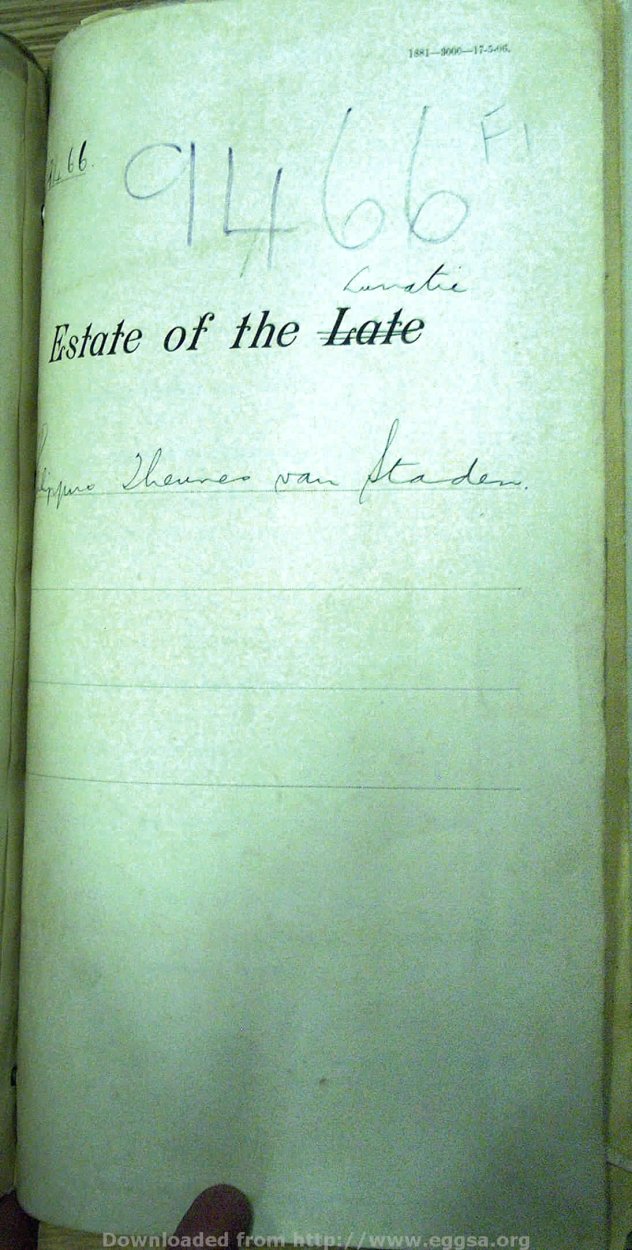 1881—9000—17-5-06.
F1
9466
9466.
Lunatic
Estate of the Late
Theunes van Staden.
Downloaded from http://www.eggsa.org